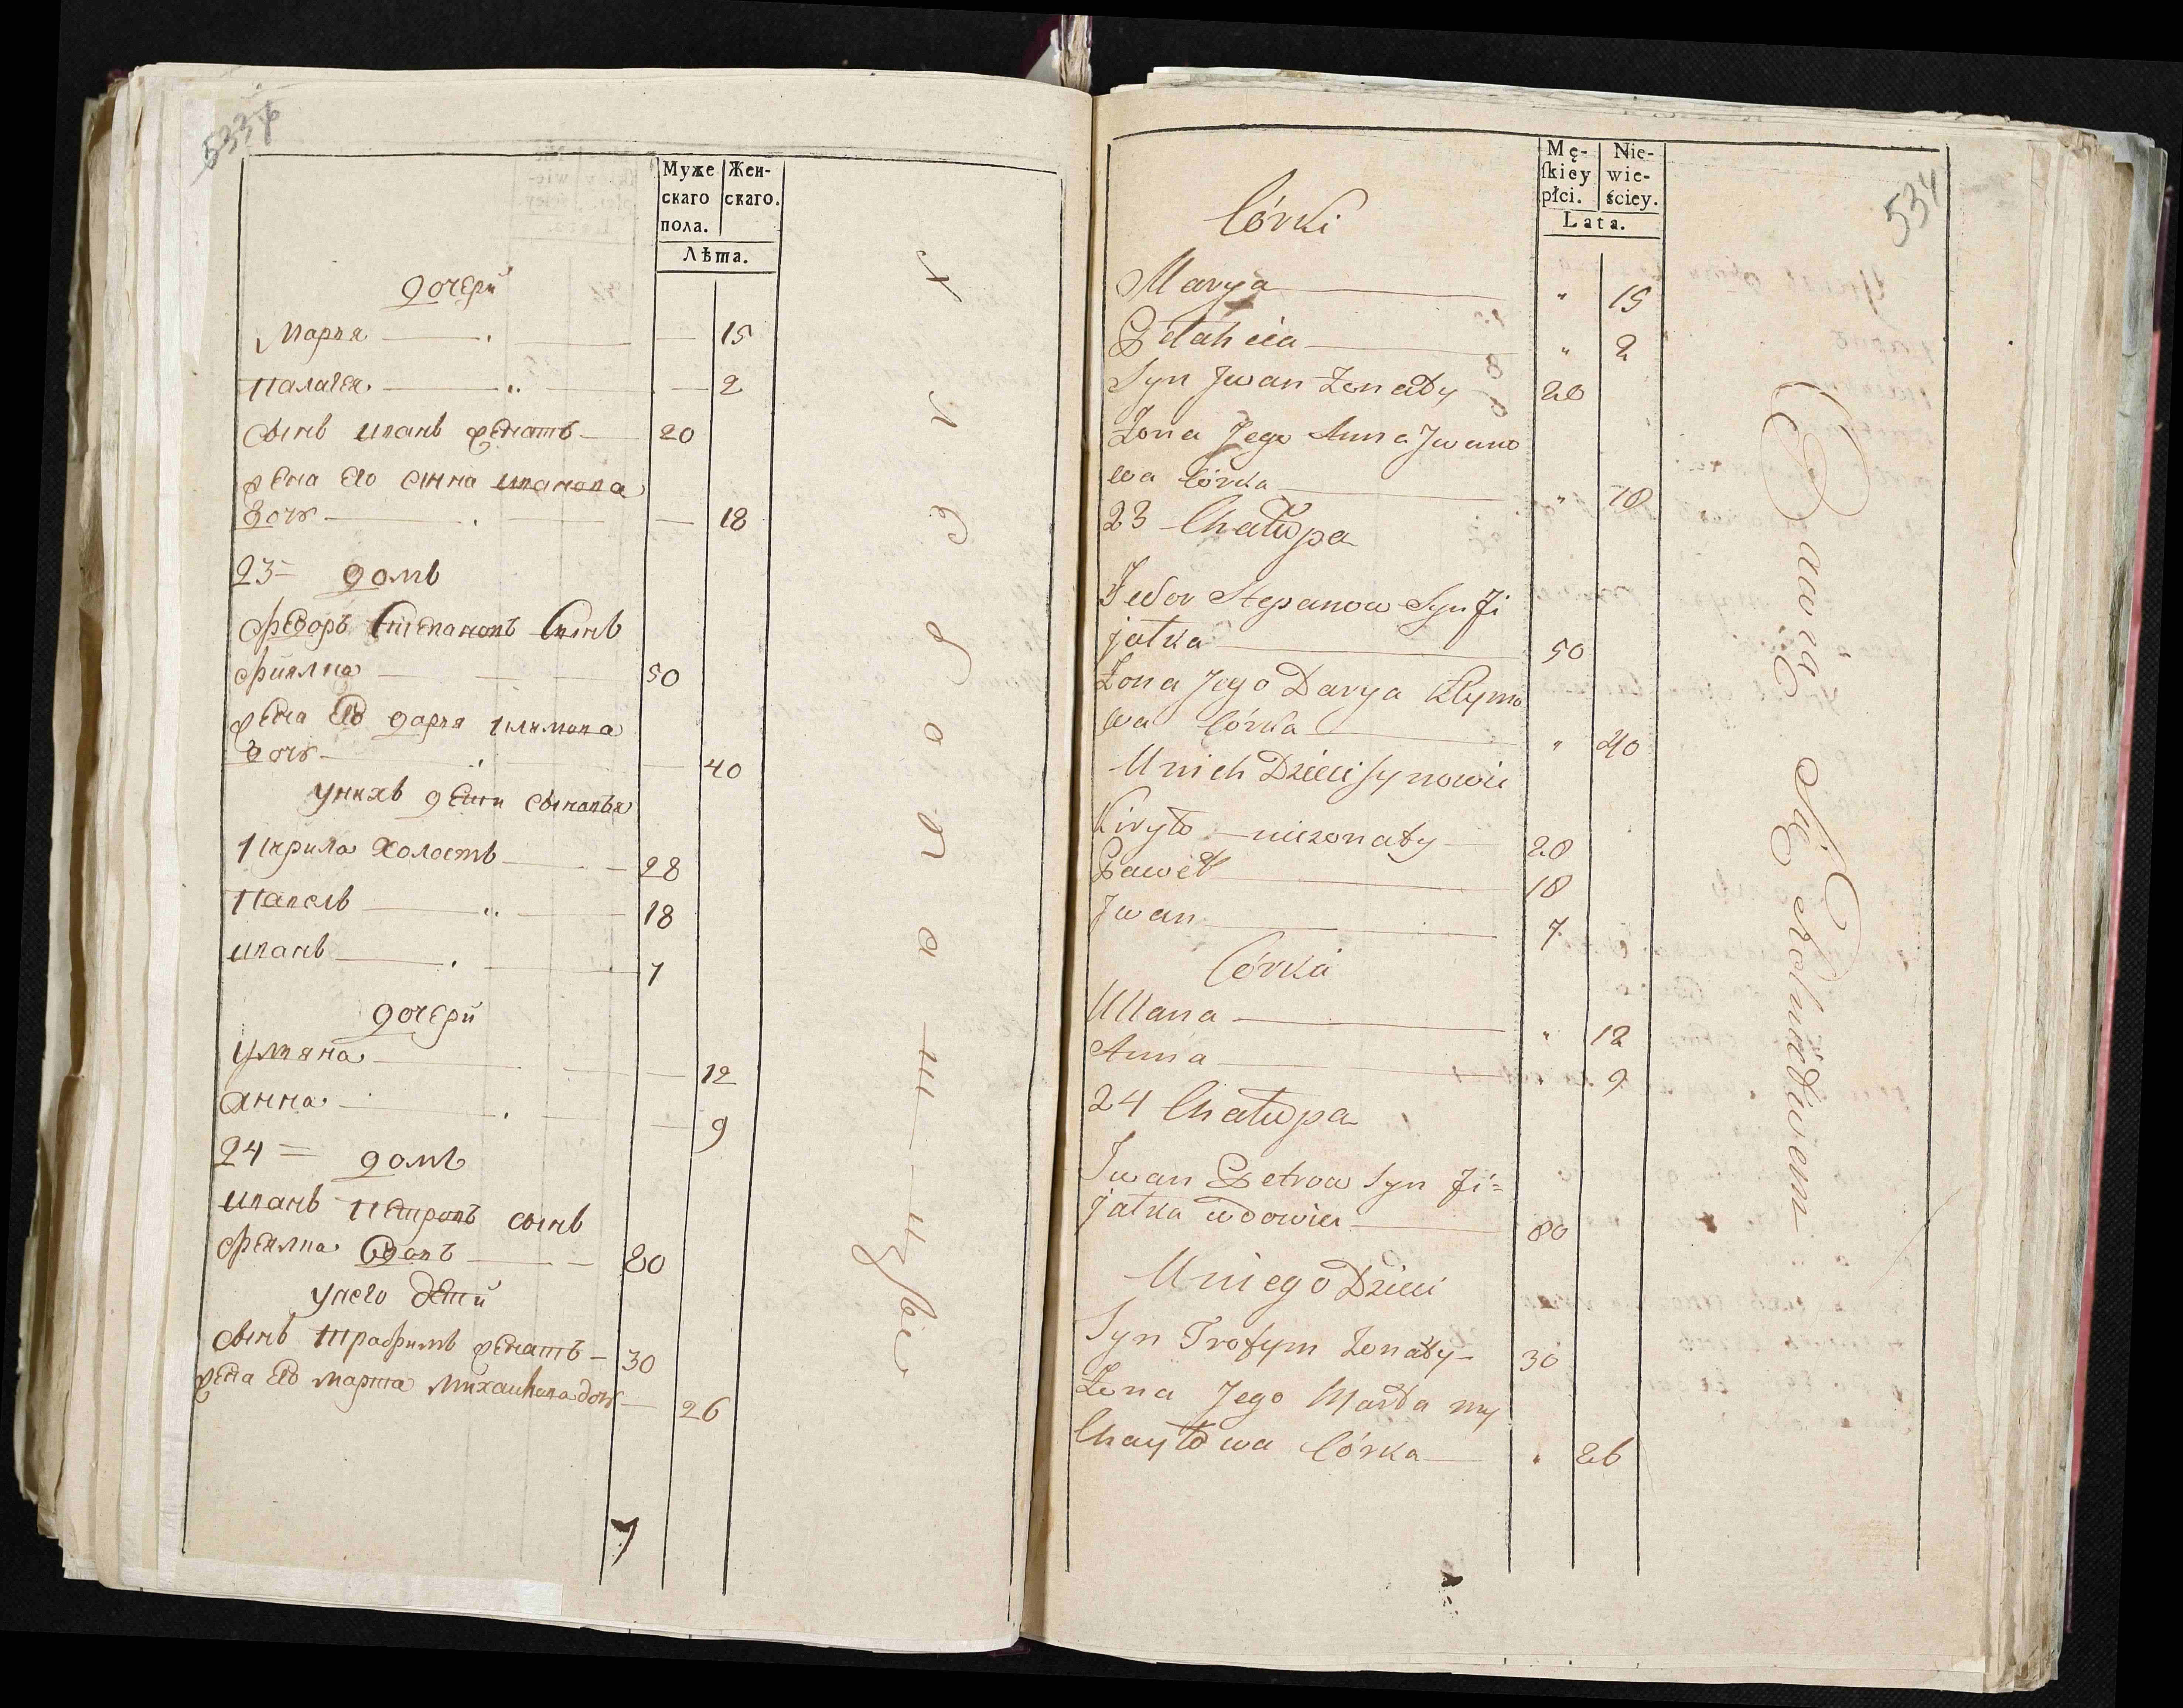 533
Муже
скаго
пола.
Жен-
скаго.
Лѣта.
дочери
Марья 15
Палагея 2
сынъ иванъ женатъ 20
жена Его анна иванова
дочь 18
23 = домъ
Федоръ Степановъ Сынъ
Фиялка 50
жена Его дарья климова
дочь 40
уних дети сыновья
Кирила Холостъ 28
Павелъ 18
иванъ 7
дочери
Ульяна 12
анна 9
24 = домъ
иванъ Петровъ сынъ
Фиялка вдовъ 80
унего дети
сынъ Трафимъ женатъ 30
жена Его марта Михаилова дочь 26
7
534
Mę-
skiey
płci.
Nie-
wie-
ściey.
Lata.
Córki
Marya " 15
Pelahiia " 2
Syn Jwan Żonaty 20
Żona Jego Anna Jwano
wa Córka " 18
23 Chałupa
Fedor Stepanow Syn Fi
jałka 50
Żona Jego Darya Klymo
wa Córka " 40
U nich Dzieci synowie
Kiryło nieżonaty 28
Paweł 18
Jwan 7
Córki
Ullana " 12
Anna " 9
24 Chałupa
Jwan Petrow Syn Fi=
jałka wdowiec 80
U niego Dzieci
Syn Trofym Żonaty 30
Żona Jego Marta my
Chayłowa Córka " 26